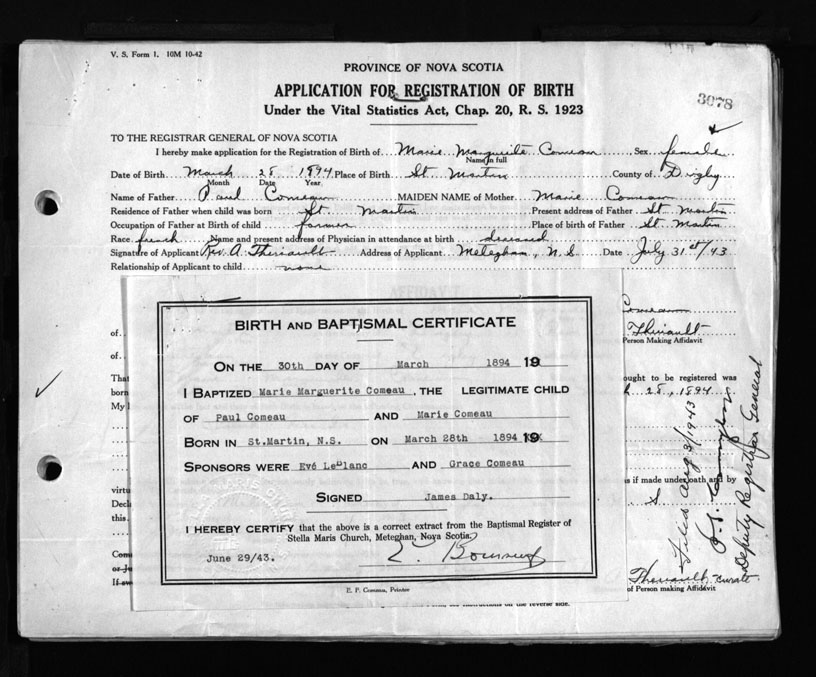 V. S. Form 1. 10M 10-42
PROVINCE OF NOVA SCOTIA
APPLICATION FOR REGISTRATION OF BIRTH
Under the Vital Statistics Act, Chap. 20, R. S. 1923
3078
TO THE REGISTRAR GENERAL OF NOVA SCOTIA
I hereby make application for the Registration of Birth of Marie Marguerite Comeau Sex female
Name in full
Date of Birth March 28 1894 Place of Birth St. Martin County of Digby
Month Date Year
Name of Father Paul Comeau MAIDEN NAME of Mother Marie Comeau
Residence of Father when child was born St. Martin Present address of Father St. Martin
Occupation of Father at Birth of child farmer Place of birth of Father St. Martin
Race french Name and present address of Physician in attendance at birth deceased
Signature of Applicant Rev. A. Theriault Address of Applicant Meteghan, N. S. Date July 31st/43
Relationship of Applicant to child none
AFFIDAVIT
Comeau
of Theriault
Person Making Affidavit
of
That ought to be registered was
born 28, 1894
My
is if made under oath and by
virtu
Decl
this
Theriault curate
of Person making Affidavit
Filed Aug 3/1943
Deputy Registrar General
BIRTH AND BAPTISMAL CERTIFICATE
ON THE 30th DAY OF March 1894 19
I BAPTIZED Marie Marguerite Comeau, THE LEGITIMATE CHILD
OF Paul Comeau AND Marie Comeau
BORN IN St.Martin, N.S. ON March 28th 1894 19
SPONSORS WERE Evé LeBlanc AND Grace Comeau
SIGNED James Daly.
I HEREBY CERTIFY that the above is a correct extract from the Baptismal Register of
Stella Maris Church, Meteghan, Nova Scotia.
June 29/43.
E. P. Comeau, Printer
on the reverse side.